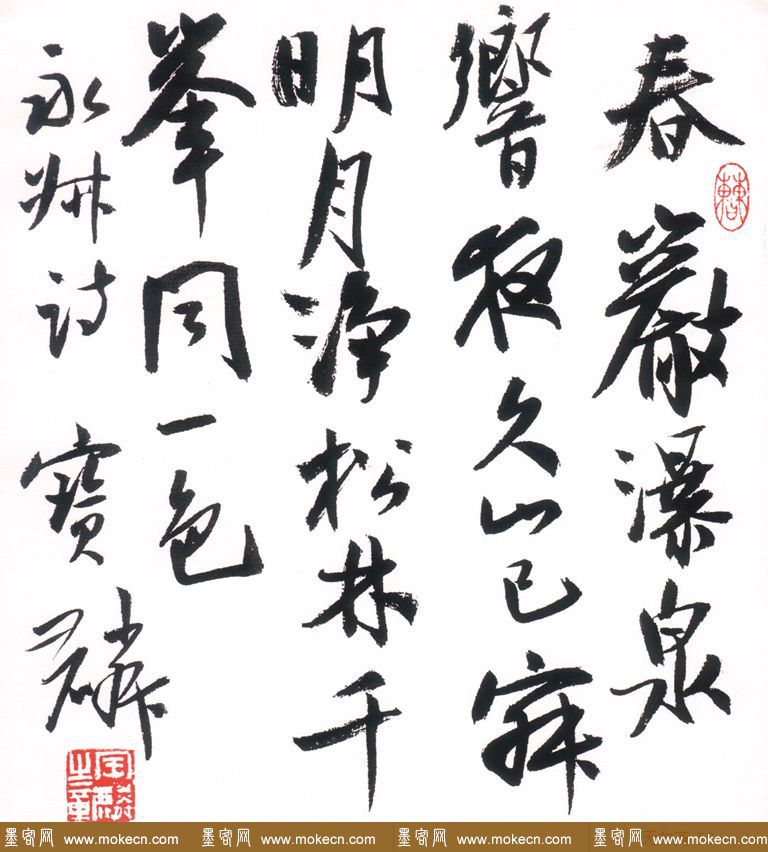 春巖瀑泉
響夜久山已寂
明月淨松林千
峯同一色
永叔詩 寶麟
墨客网 www.mokecn.com 墨客网 www.mokecn.com 墨客网 www.mokecn.com 墨客网 www.mokecn.com